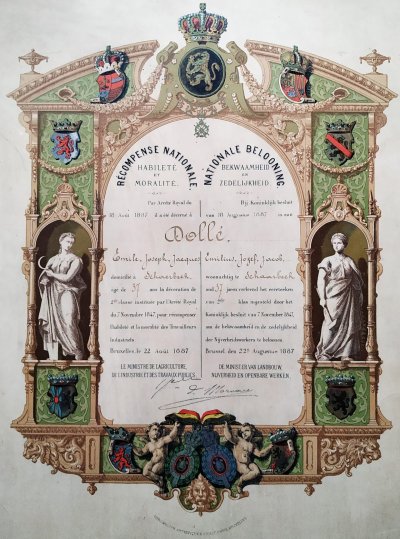 RÉCOMPENSE NATIONALE.
HABILETÉ
ET
MORALITÉ.
Par Arrêté Royal du
18 Août 1887 il a été décerné à
NATIONALE BELOONING
BEKWAAMHEID
EN
ZEDELIJKHEID.
Bij Koninklijk besluit
van 18 Augustus 1887 is aan
Dollé,
Emile, Joseph, Jacques
domicilié à Schaerbeek
âgé de 37 ans la décoration de
2de classe instituée par l'Arrêté Royal
du 7 Novembre 1847, pour récompenser
l'habileté et la moralité des Travailleurs
industriels.
Bruxelles, le 22 Août 1887
LE MINISTRE DE L'AGRICULTURE,
DE L'INDUSTRIE ET DES TRAVAUX PUBLICS.
Emilius, Jozef, Jacob,
woonachtig te Schaarbeek
oud 37 jaren verleend het eereteeken
van 2de klas ingesteld door het
Koninklijk besluit van 7 November 1847,
om de bekwaamheid en de zedelijkheid
der Nijverheidswerkers te beloonen.
Brussel, den 22n Augustus 1887
DE MINISTER VAN LANDBOUW,
NIJVERHEID EN OPENBARE WERKEN.